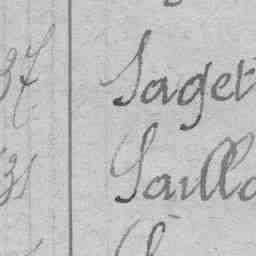 37 Saget
31 Saill